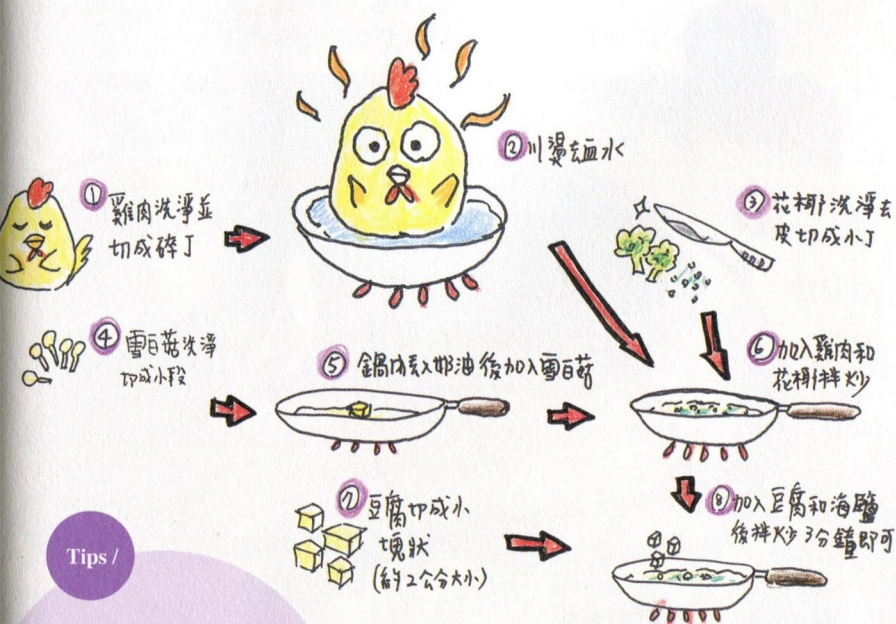 ① 雞肉洗淨並
切成碎丁
② 川燙去血水
③ 花椰洗淨去
皮切成小丁
④ 雪白菇洗淨
切成小段
⑤ 鍋內放入奶油後加入雪白菇
⑥ 加入雞肉和
花椰拌炒
⑦ 豆腐切成小
塊狀
(約2公分大小)
⑧ 加入豆腐和海鹽
後拌炒3分鐘即可
Tips /